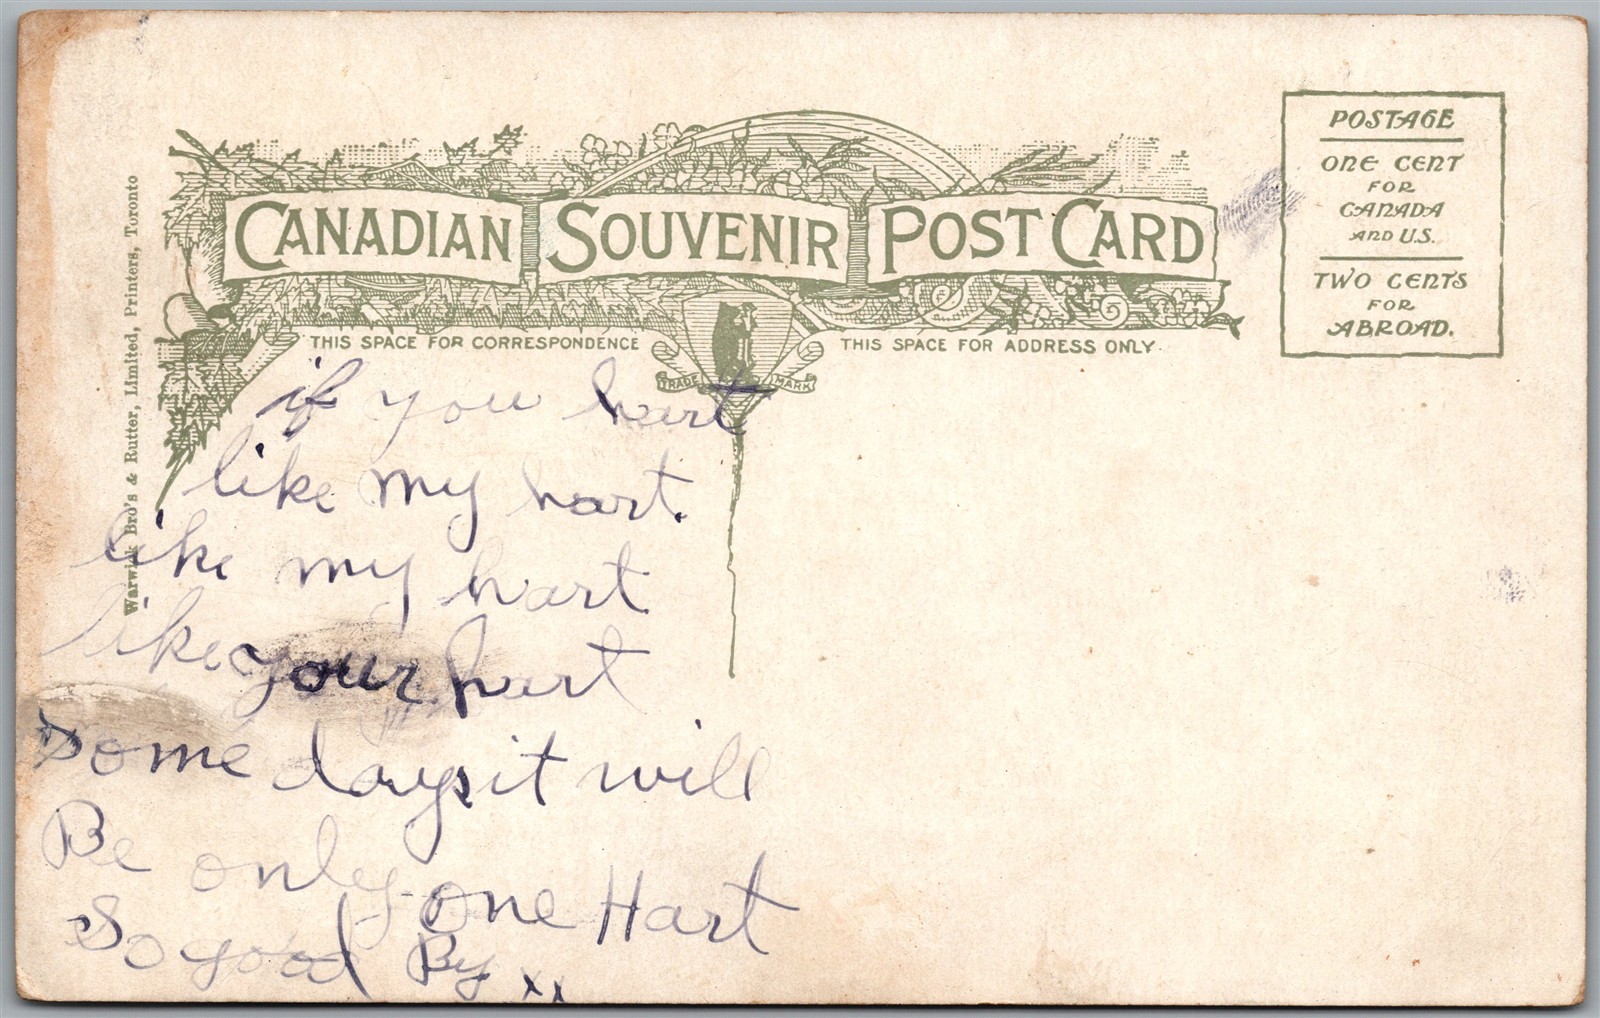 CANADIAN SOUVENIR POST CARD
POSTAGE
ONE CENT
FOR
CANADA
AND U.S.
TWO CENTS
FOR
ABROAD.
THIS SPACE FOR CORRESPONDENCE
THIS SPACE FOR ADDRESS ONLY.
TRADE MARK
Warwick Bro's & Rutter, Limited, Printers, Toronto
if you hart
like my hart.
like my hart
like your hart
Some days it will
Be only one Hart
So good By xx